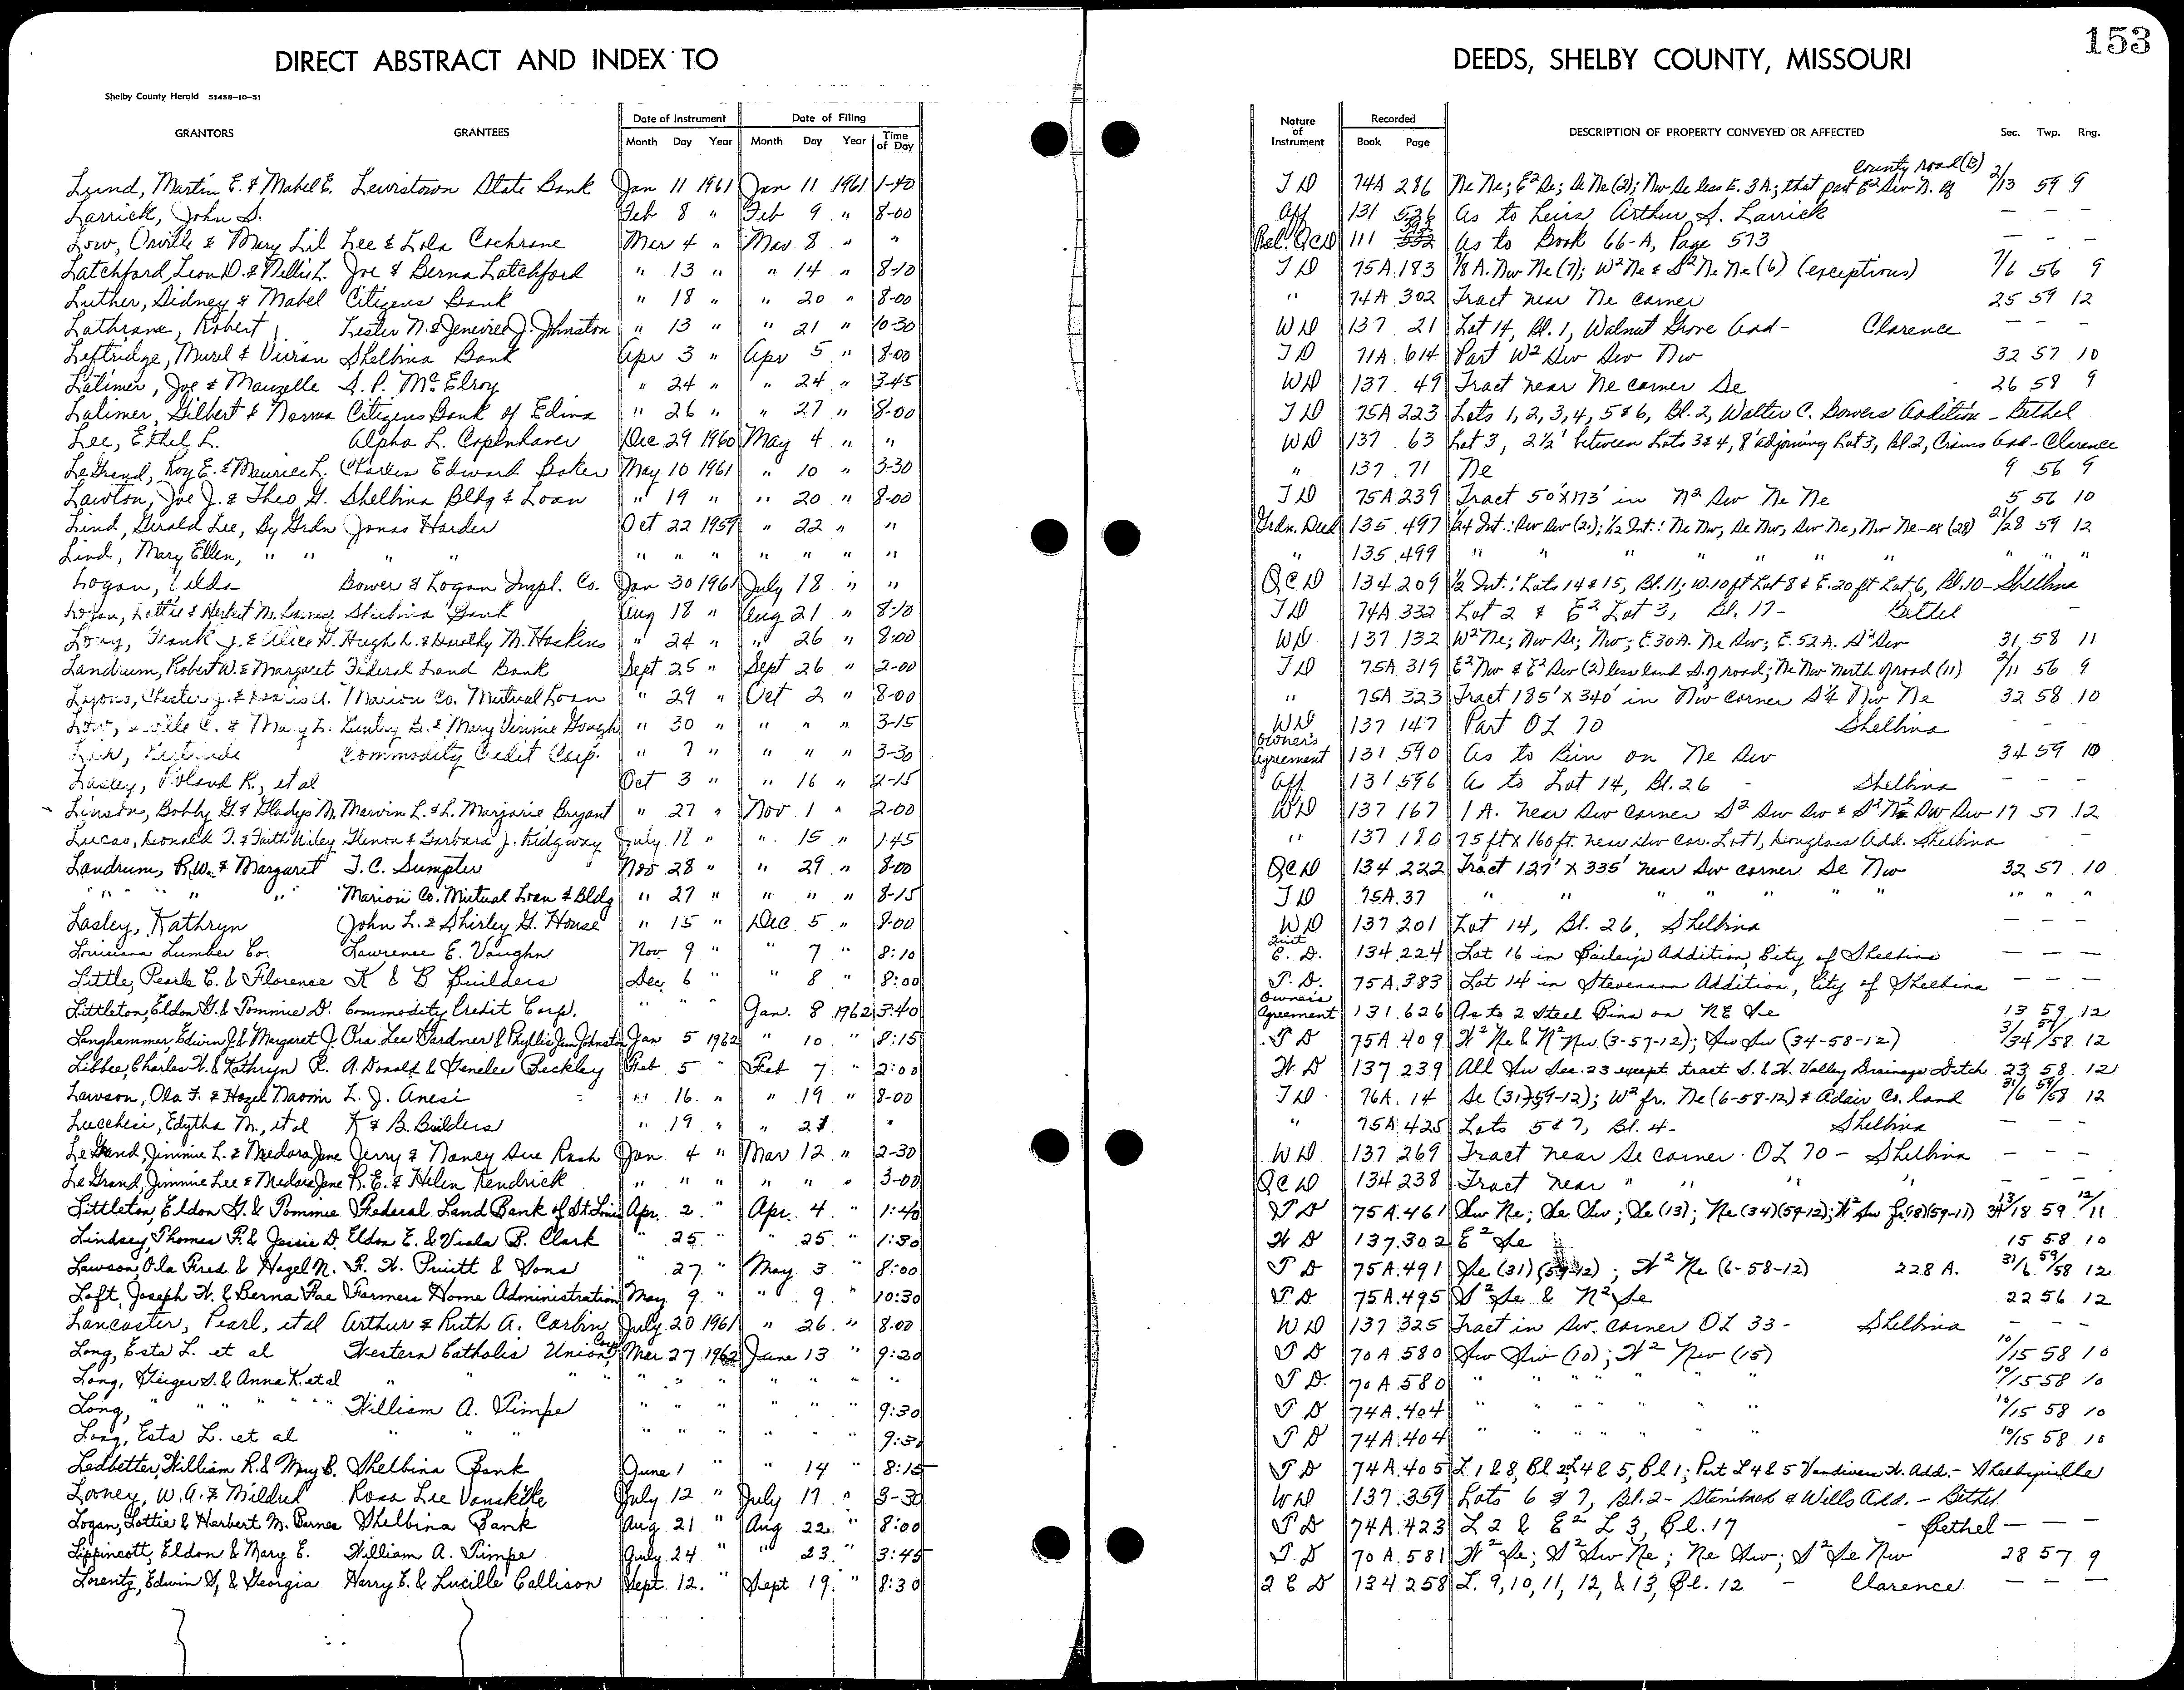 153
DIRECT ABSTRACT AND INDEX TO DEEDS, SHELBY COUNTY, MISSOURI
Shelby County Herald 51458-10-51
GRANTORS GRANTEES Date of Instrument Month Day Year Date of Filing Month Day Year Time of Day Nature of Instrument Recorded Book Page DESCRIPTION OF PROPERTY CONVEYED OR AFFECTED Sec. Twp. Rng.
Lund, Martin E. & Mabel E. Lewistown State Bank Jan 11 1961 Jan 11 1961 1-40 T D 74A 286 Ne Ne; E² Se; Se Ne (2); Nw Se less E. 3A; that part E² Sw N. of County road (13) 2/13 59 9
Larrick, John S. Feb 8 " Feb 9 " 8-00 Aff 131 526 As to heirs Arthur S. Larrick — — —
Low, Orville & Mary Lil Lee & Lola Cochrane Mar 4 " Mar. 8 " " Rel. QCD 111 As to Book 66-A, Page 573 — — —
Latchford, Leon D. & Nellie L. Joe & Berna Latchford " 13 " " 14 " 8-10 T D 75A 183 1/8 A. Nw Ne (7); W² Ne & S² Ne Ne (6) (exceptions) 7/6 56 9
Luther, Sidney & Mabel Citizens Bank " 18 " " 20 " 8-00 " 74A 302 Tract near Ne corner 25 59 12
Lathrane, Robert Lester N. & Jenevieve J. Johnston " 13 " " 21 " 10-30 W D 137 21 Lot 14, Bl. 1, Walnut Grove Add - Clarence — — —
Leftridge, Murel & Vivian Shelbina Bank Apr 3 " Apr 5 " 8-00 T D 71A 614 Part W² Sw Sw Nw 32 57 10
Latimer, Joe & Mauzelle S. P. McElroy " 24 " " 24 " 3-45 W D 137 49 Tract near Ne corner Se 26 58 9
Latimer, Gilbert & Norma Citizens Bank of Edina " 26 " " 27 " 8-00 T D 75A 223 Lots 1, 2, 3, 4, 5 & 6, Bl. 2, Walter C. Bowers Addition - Bethel
Lee, Ethel L. Alpha L. Copenhaver Dec 29 1960 May 4 " " W D 137 63 Lot 3, 2½' between Lots 3 & 4, 8' adjoining Lot 3, Bl 2, Crams Add - Clarence
LeGrand, Roy E. & Maurice L. Charles Edward Baker May 10 1961 " 10 " 3-30 " 137 71 Ne 9 56 9
Lawton, Joe J. & Theo G. Shelbina Bldg & Loan " 19 " " 20 " 8-00 T D 75A 239 Tract 50' X 173' in N² Sw Ne Ne 5 56 10
Lind, Gerald Lee, By Grdn Jonas Harder Oct 22 1959 " 22 " " Grdn. Deed 135 497 1/24 Int.: Sw Sw (21); 1/2 Int.: Ne Nw, Se Nw, Sw Ne, Nw Ne-ex (28) 21/28 59 12
Lind, Mary Ellen, " " " " " " " " " " " " 135 499 " " " " " " " " " "
Logan, Zelda Bower & Logan Impl. Co. Jan 30 1961 July 18 " " Q C D 134 209 1/2 Int.: Lots 14 & 15, Bl. 11; W. 10 ft Lot 8 & E. 20 ft Lot 6, Bl. 10 - Shelbina
Logan, Lottie & Herbert M. Barnes Shelbina Bank Aug 18 " Aug 21 " 8-10 T D 74A 332 Lot 2 & E² Lot 3, Bl. 17 - Bethel —
Long, Frank J. & Alice G. Hugh D. & Dorothy M. Hoskins " 24 " " 26 " 8-00 W D 137 132 W² Ne; Nw Se; Nw; E. 30 A. Ne Sw; E. 52 A. S² Sw 31 58 11
Landrum, Robert W. & Margaret Federal Land Bank Sept 25 " Sept 26 " 2-00 T D 75A 319 E² Nw & E² Sw (2) less land S. of road; Ne Nw North of road (11) 2/11 56 9
Lyons, Chester J. & Marion Co. Mutual Loan " 29 " Oct 2 " 8-00 " 75A 323 Tract 185' X 340' in Nw corner S½ Nw Ne 32 58 10
Low, Orville C. & Mary L. Gentry B. & Mary Virginia Gough " 30 " " " " 3-15 W D 137 147 Part OL 70 Shelbina — —
Gertrude Commodity Credit Corp. " 7 " " " " 3-30 Owner's Agreement 131 590 As to Bin on Ne Sw 34 59 10
Lasley, Roland R., et al Oct 3 " " 16 " 2-15 Aff 131 596 As to Lot 14, Bl. 26 - Shelbina — — —
Linston, Bobby G. & Gladys M. Marvin L. & L. Marjorie Bryant " 27 " Nov. 1 " 2-00 W D 137 167 1 A. near Sw corner S² Sw Sw & S² N² Sw Sw 17 57 12
Lucas, Donald T. & Faith Wiley Glenon & Barbara J. Ridgway July 18 " " 15 " 1-45 " 137 180 75 ft X 160 ft. near Sw cor. Lot 1, Douglass Add. Shelbina — —
Landrum, R.W. & Margaret T.C. Sumpter Nov 28 " " 29 " 8-00 Q C D 134 222 Tract 127' X 335' near Sw corner Se Nw 32 57 10
" " " " Marion Co. Mutual Loan & Bldg " 27 " " " " 8-15 T D 75A.37 " " " " " " " " "
Lasley, Kathryn John L. & Shirley G. House " 15 " Dec. 5 " 8-00 W D 137 201 Lot 14, Bl. 26, Shelbina — — —
Louisiana Lumber Co. Lawrence E. Vaughn Nov. 9 " " 7 " 8:10 Quit C. D. 134 224 Lot 16 in Bailey's Addition, City of Shelbina — — —
Little, Pearle E. & Florence K & B Builders Dec. 6 " " 8 " 8:00 T. D. 75A.383 Lot 14 in Stevenson Addition, City of Shelbina — — —
Littleton, Eldon G. & Tommie D. Commodity Credit Corp. " " " Jan. 8 1962 3:40 Owner's Agreement 131.626 As to 2 Steel Bins on NE Se 13 59 12
Langhammer, Edwin J. & Margaret J. Ora Lee Gardner & Phyllis Jean Johnston Jan 5 1962 " 10 " 8:15 T D 75A 409 W² Ne & N² Nw (3-57-12); Sw Sw (34-58-12) 3/34 57/58 12
Libbee, Charles W. & Kathryn R. A. Donald & Genelee Beckley Feb 5 " Feb 7 " 2:00 W D 137.239 All Sw Sec. 23 except tract S. & W. Valley Drainage Ditch 23 58 12
Lawson, Ola F. & Hazel Naomi L. J. Anesi " 16 " " 19 " 8-00 T D 76A. 14 Se (31-59-12); W² fr. Ne (6-58-12) & Adair Co. land 31/6 59/58 12
Lucchesi, Edytha M., et al K & B. Builders " 19 " " 21 " " 75A.425 Lots 5 & 7, Bl. 4 - Shelbina — — —
LeGrand, Jimmie L. & Medora Jane Jerry & Nancy Sue Rash Jan 4 " Mar 12 " 2-30 W D 137 269 Tract near Se corner OL 70 - Shelbina — — —
LeGrand, Jimmie Lee & Medora Jane R. E. & Helen Kendrick " " " " " " 3-00 Q C D 134 238 Tract near " " " " — — —
Littleton, Eldon G. & Tommie Federal Land Bank of St. Louis Apr. 2 " Apr. 4 " 1:40 T D 75A.461 Sw Ne; Se Sw; Se (13); Ne (34) (59-12); W² Sw fr. (18) (59-11) 59
Lindsey, Thomas F. & Jessie D. Eldon E. & Viola B. Clark " 25 " " 25 " 1:30 W D 137.302 E² Se 15 58 10
Lawson, Ola Fred & Hazel N. F. W. Pruitt & Sons " 27 " May 3 " 8:00 T D 75A.491 Se (31) (59-12); W² Ne (6-58-12) 228 A. 31/6 59/58 12
Loft, Joseph W. & Berna Fae Farmers Home Administration May 9 " " 9 " 10:30 T D 75A.495 S² Se & N² Se 22 56 12
Lancaster, Pearl, et al Arthur & Ruth A. Corbin July 20 1961 " 26 " 8-00 W D 137 325 Tract in Sw. corner OL 33 - Shelbina — — —
Long, Esta L. et al Western Catholic Union Mar 27 1962 June 13 " 9:20 T D 70A.580 Sw Sw (10); W² Nw (15) 10/15 58 10
Long, Geiger S. & Anna K. et al " " " " " " " " " " T D. 70A.580 " " " " " " 10/15 58 10
Long, " " " " " William A. Timpe " " " " " " 9:30 T D 74A.404 " " " " " " 10/15 58 10
Long, Esta L. et al " " " " " " " " " 9:30 T D 74A.404 " " " " " " 10/15 58 10
Ledbetter, William R. & Mary B. Shelbina Bank June 1 " " 14 " 8:15 T D 74A.405 L 1 & 8, Bl 2; L 4 & 5, Bl 1; Part L 4 & 5 Vandivers W. Add. - Shelbyville
Looney, W. A. & Mildred Rosa Lee Vanskike July 12 " July 17 " 3-30 W D 137.359 Lots 6 & 7, Bl. 2 - Steinbach & Wells Add. - Bethel
Logan, Lottie & Herbert M. Barnes Shelbina Bank Aug 21 " Aug 22 " 8:00 T D 74A.423 L 2 & E² L 3, Bl. 17 - Bethel — — —
Lippincott, Eldon & Mary E. William A. Timpe July 24 " " 23 " 3:45 T. D 70A.581 W² Se; S² Sw Ne; Ne Sw; S² Se Nw 28 57 9
Lorentz, Edwin S, & Georgia Harry E. & Lucille Callison Sept. 12. " Sept 19 " 8:30 Q C D 134 258 L. 9, 10, 11, 12, & 13, Bl. 12 - Clarence — — —